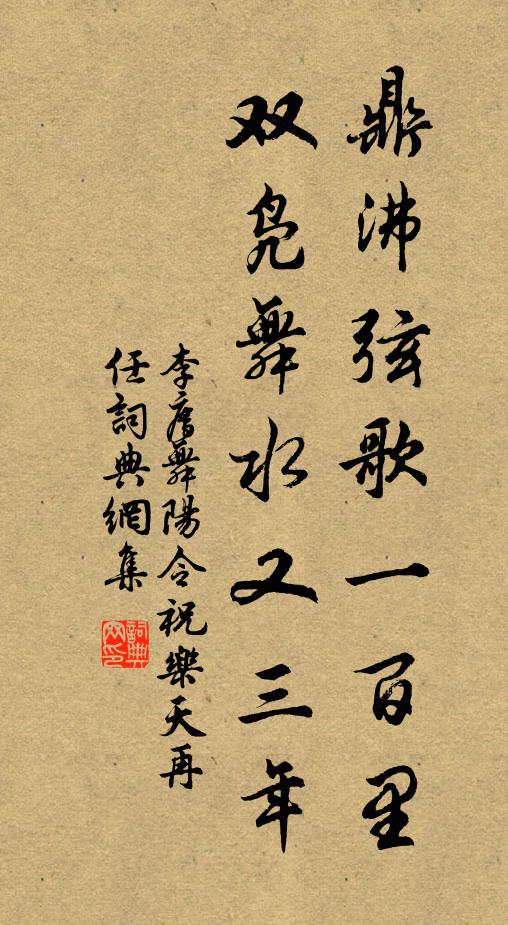 鼎沸弦歌一百里
双凫舞水又三年
李廌舞陽令祝樂天再
任詞典網集
詞典网印